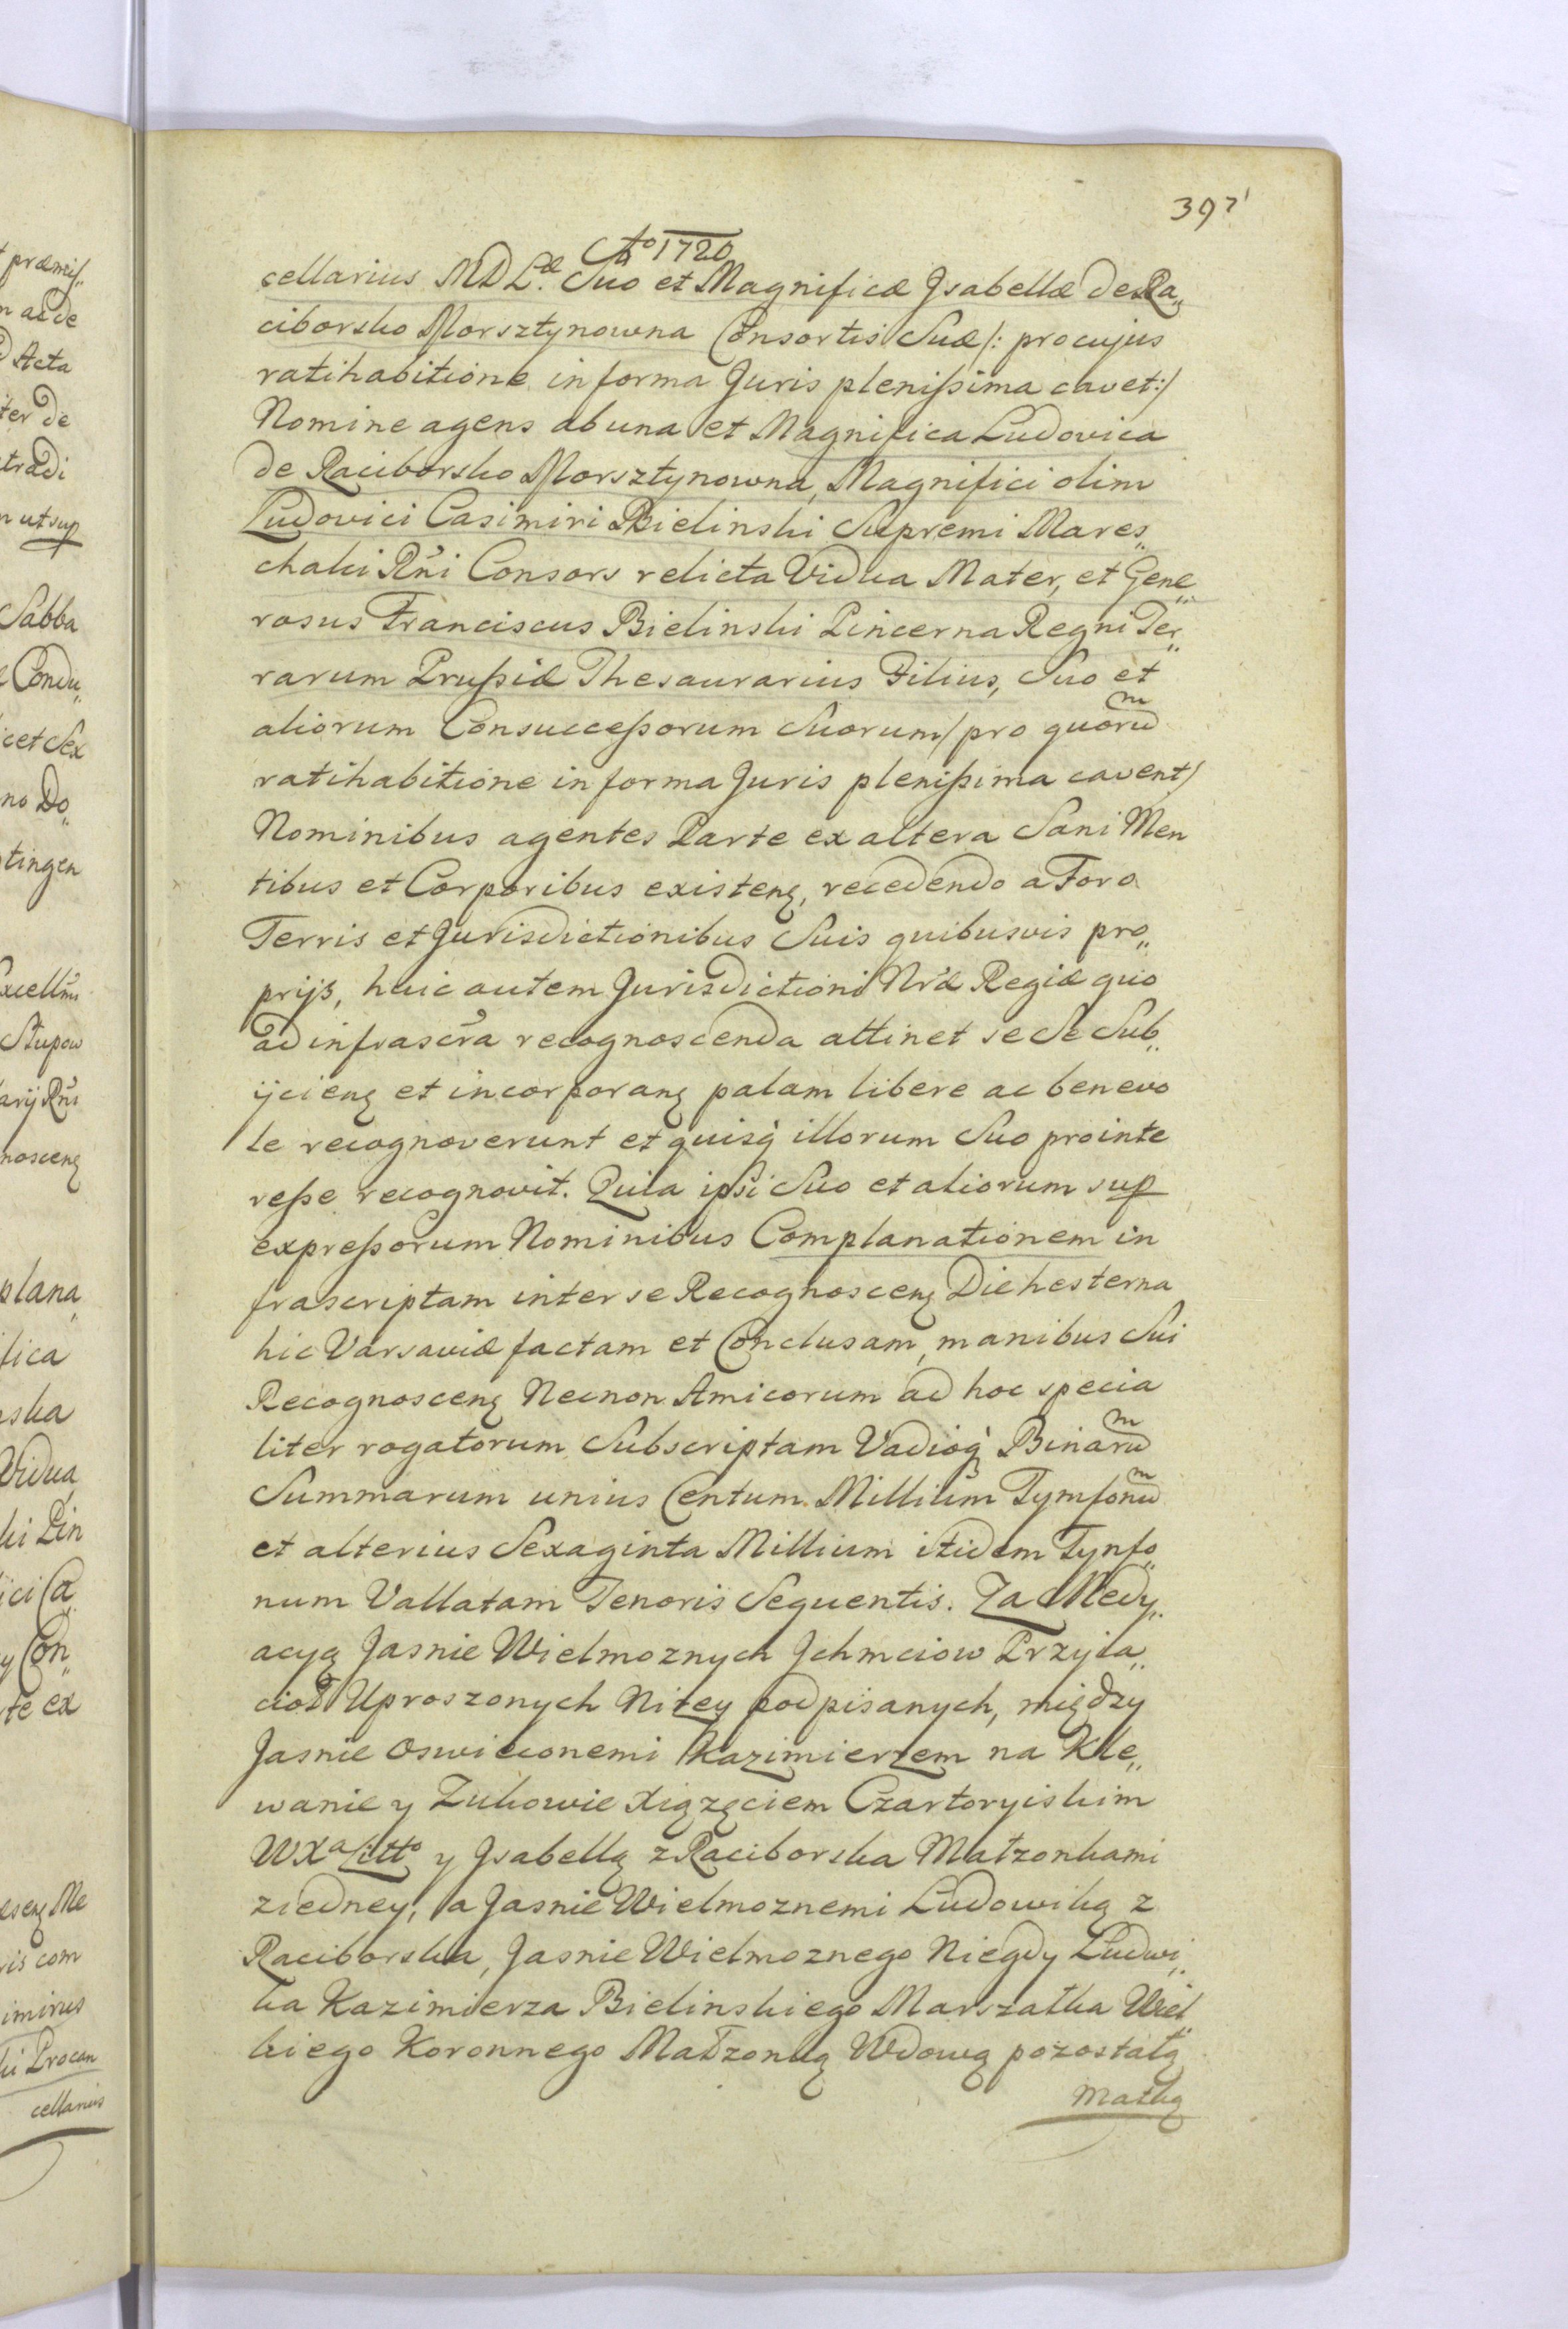 397
Aº 1720
cellarius MDLæ. Suo et Magnificæ Jsabellæ de Ra„
ciborsko Morsztynowna Consortis Suæ /: pro cujus
ratihabitione in forma Juris plenißima cavet :/
Nomine agens ab una et Magnifica Ludovica
de Raciborsko Morsztynowna, Magnifici olim
Ludovici Casimiri Bielinski Supremi Mares„
chalci Rñi Consors relicta Vidua Mater, et Gene„
rosus Franciscus Bielinski Pincerna Regni Ter„
rarum Prußiæ Thesaurarius Filius, Suo et
aliorum Consucceßorum Suorum / pro quorum
ratihabitione in forma Juris plenißima cavent /
Nominibus agentes Parte ex altera Sani Men
tibus et Corporibus existenę, recedendo a Foro
Terris et Jurisdictionibus Suis quibusvis pro„
prijs, huic autem Jurisdictioni Nræ Regiæ quo
ad infrascra recognoscenda attinet se Se Sub„
ijcienę et incorporanę palam libere ac benevo
le recognoverunt et quisq̀ illorum Suo pro inte
reße recognovit. Quia ipsi Suo et aliorum sup
expreßorum Nominibus Complanationem in
frascriptam inter se Recognoscenę Die hesterna
hic Varsaviæ factam et Conclusam, manibus Sui
Recognoscenę Necnon Amicorum ad hoc specia
liter rogatorum Subscriptam Vadioq̀ Binarum
Summarum unius Centum Millium Tymfonum
et alterius Sexaginta Millium itidem Tynfo„
num Vallatam Tenoris Sequentis. Za Medy„
acyą Jasnie Wielmoznych Jchmciow Przyia„
cioł Uproszonych Nizey podpisanych, między
Jasnie Oswieconemi Kazimierzem na Kle„
wanie y Zukowie Xiązęciem Czartoryiskim
WXa Litto y Jsabellą z Raciborska Małzonkami
z iedney, a Jasnie Wielmoznemi Ludowiką z
Raciborska, Jasnie Wielmoznego Niegdy Ludwi„
ka Kazimierza Bielinskiego Marszałka Wiel„
kiego Koronnego Małzonką Wdową pozostałą
Matką